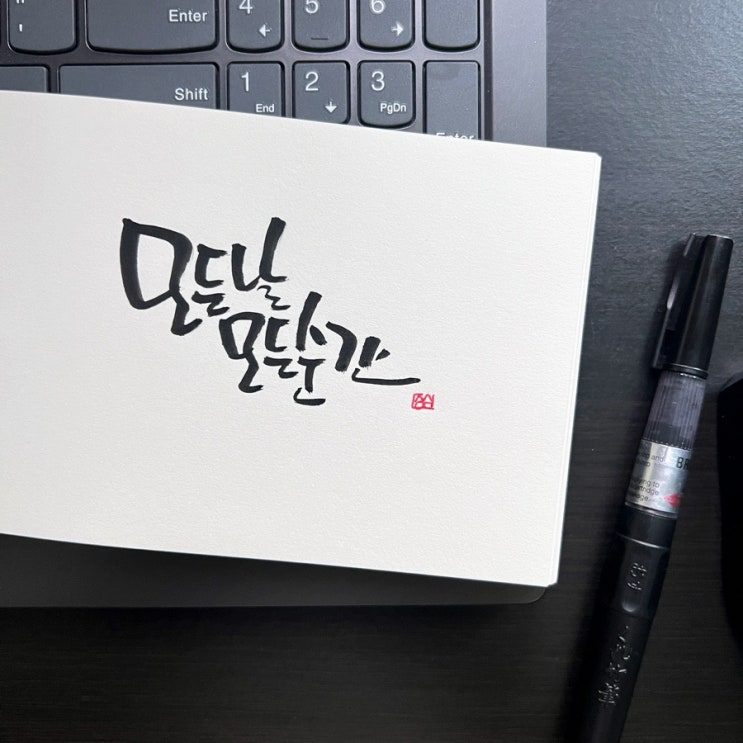 Enter
4
5
6
Shift
1
End
2
3
PgDn
Enter
모든날
모든순간